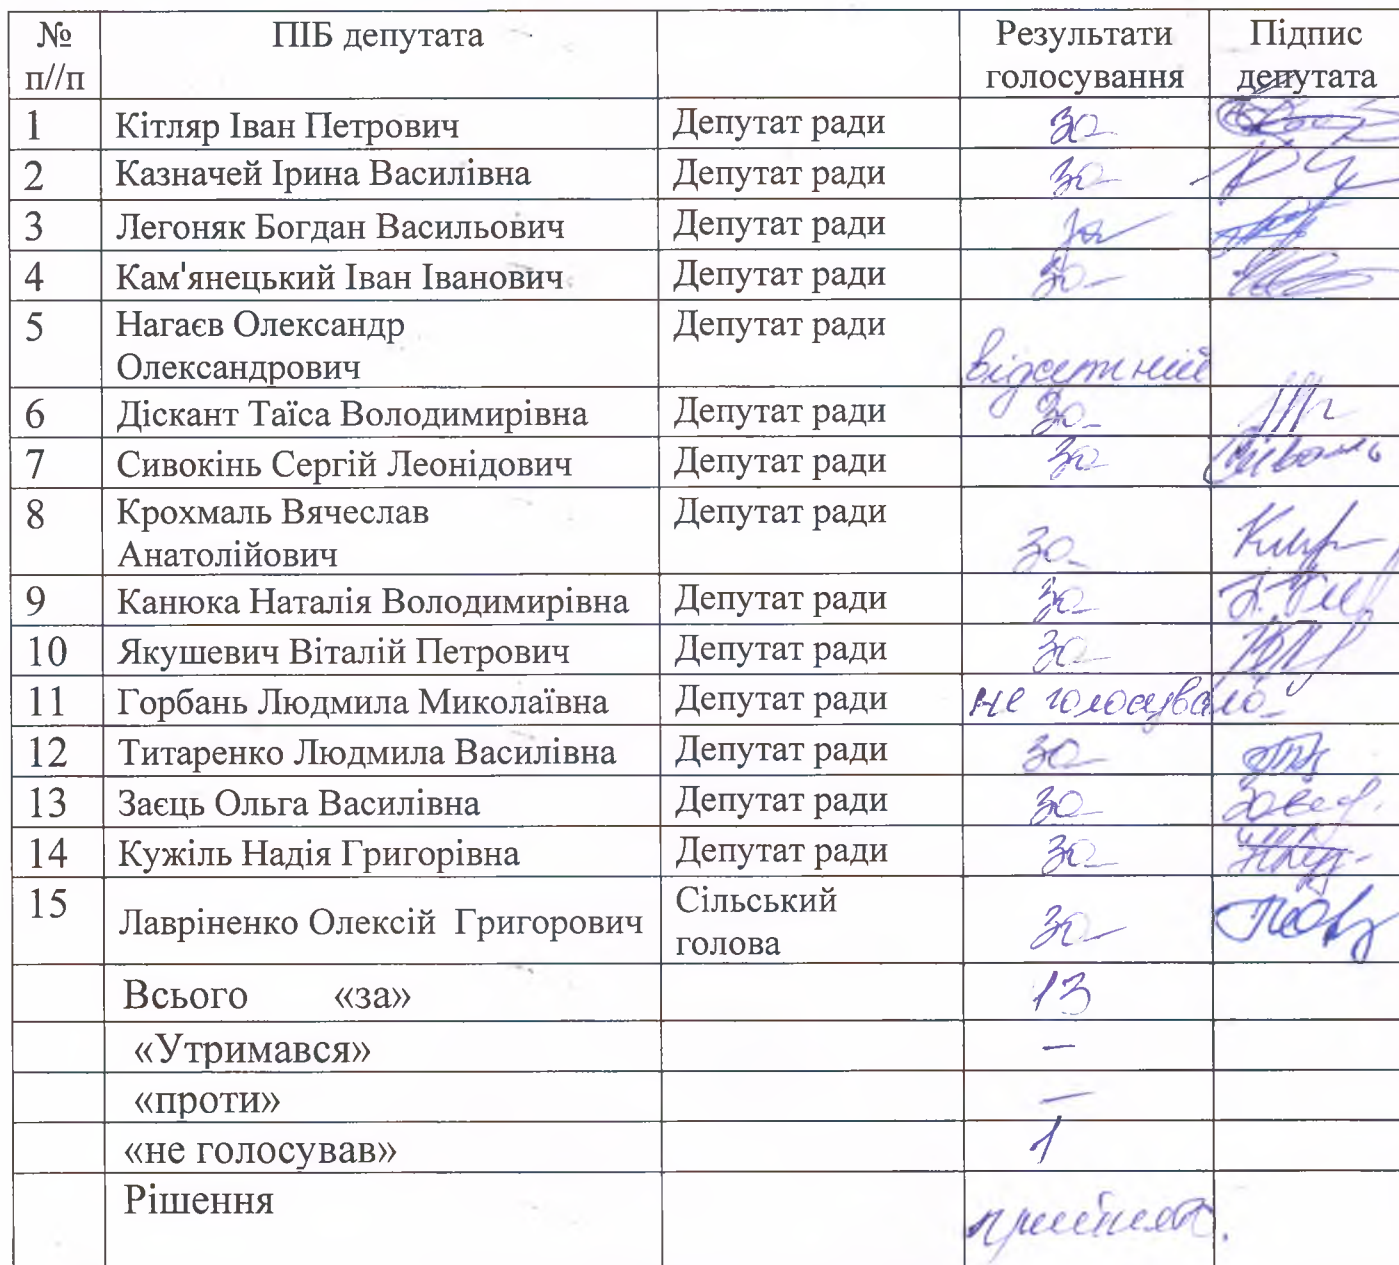 № ПІБ депутата Результати Підпис
п//п голосування депутата
1 Кітляр Іван Петрович Депутат ради за
2 Казначей Ірина Василівна Депутат ради за
3 Легоняк Богдан Васильович Депутат ради за
4 Кам'янецький Іван Іванович Депутат ради за
5 Нагаєв Олександр Депутат ради
Олександрович відсутній
6 Діскант Таїса Володимирівна Депутат ради за
7 Сивокінь Сергій Леонідович Депутат ради за
8 Крохмаль Вячеслав Депутат ради
Анатолійович за
9 Канюка Наталія Володимирівна Депутат ради за
10 Якушевич Віталій Петрович Депутат ради за
11 Горбань Людмила Миколаївна Депутат ради не голосувала
12 Титаренко Людмила Василівна Депутат ради за
13 Заєць Ольга Василівна Депутат ради за
14 Кужіль Надія Григорівна Депутат ради за
15 Лавріненко Олексій Григорович Сільський за
голова
Всього «за» 13
«Утримався» –
«проти» –
«не голосував» 1
Рішення прийнято.